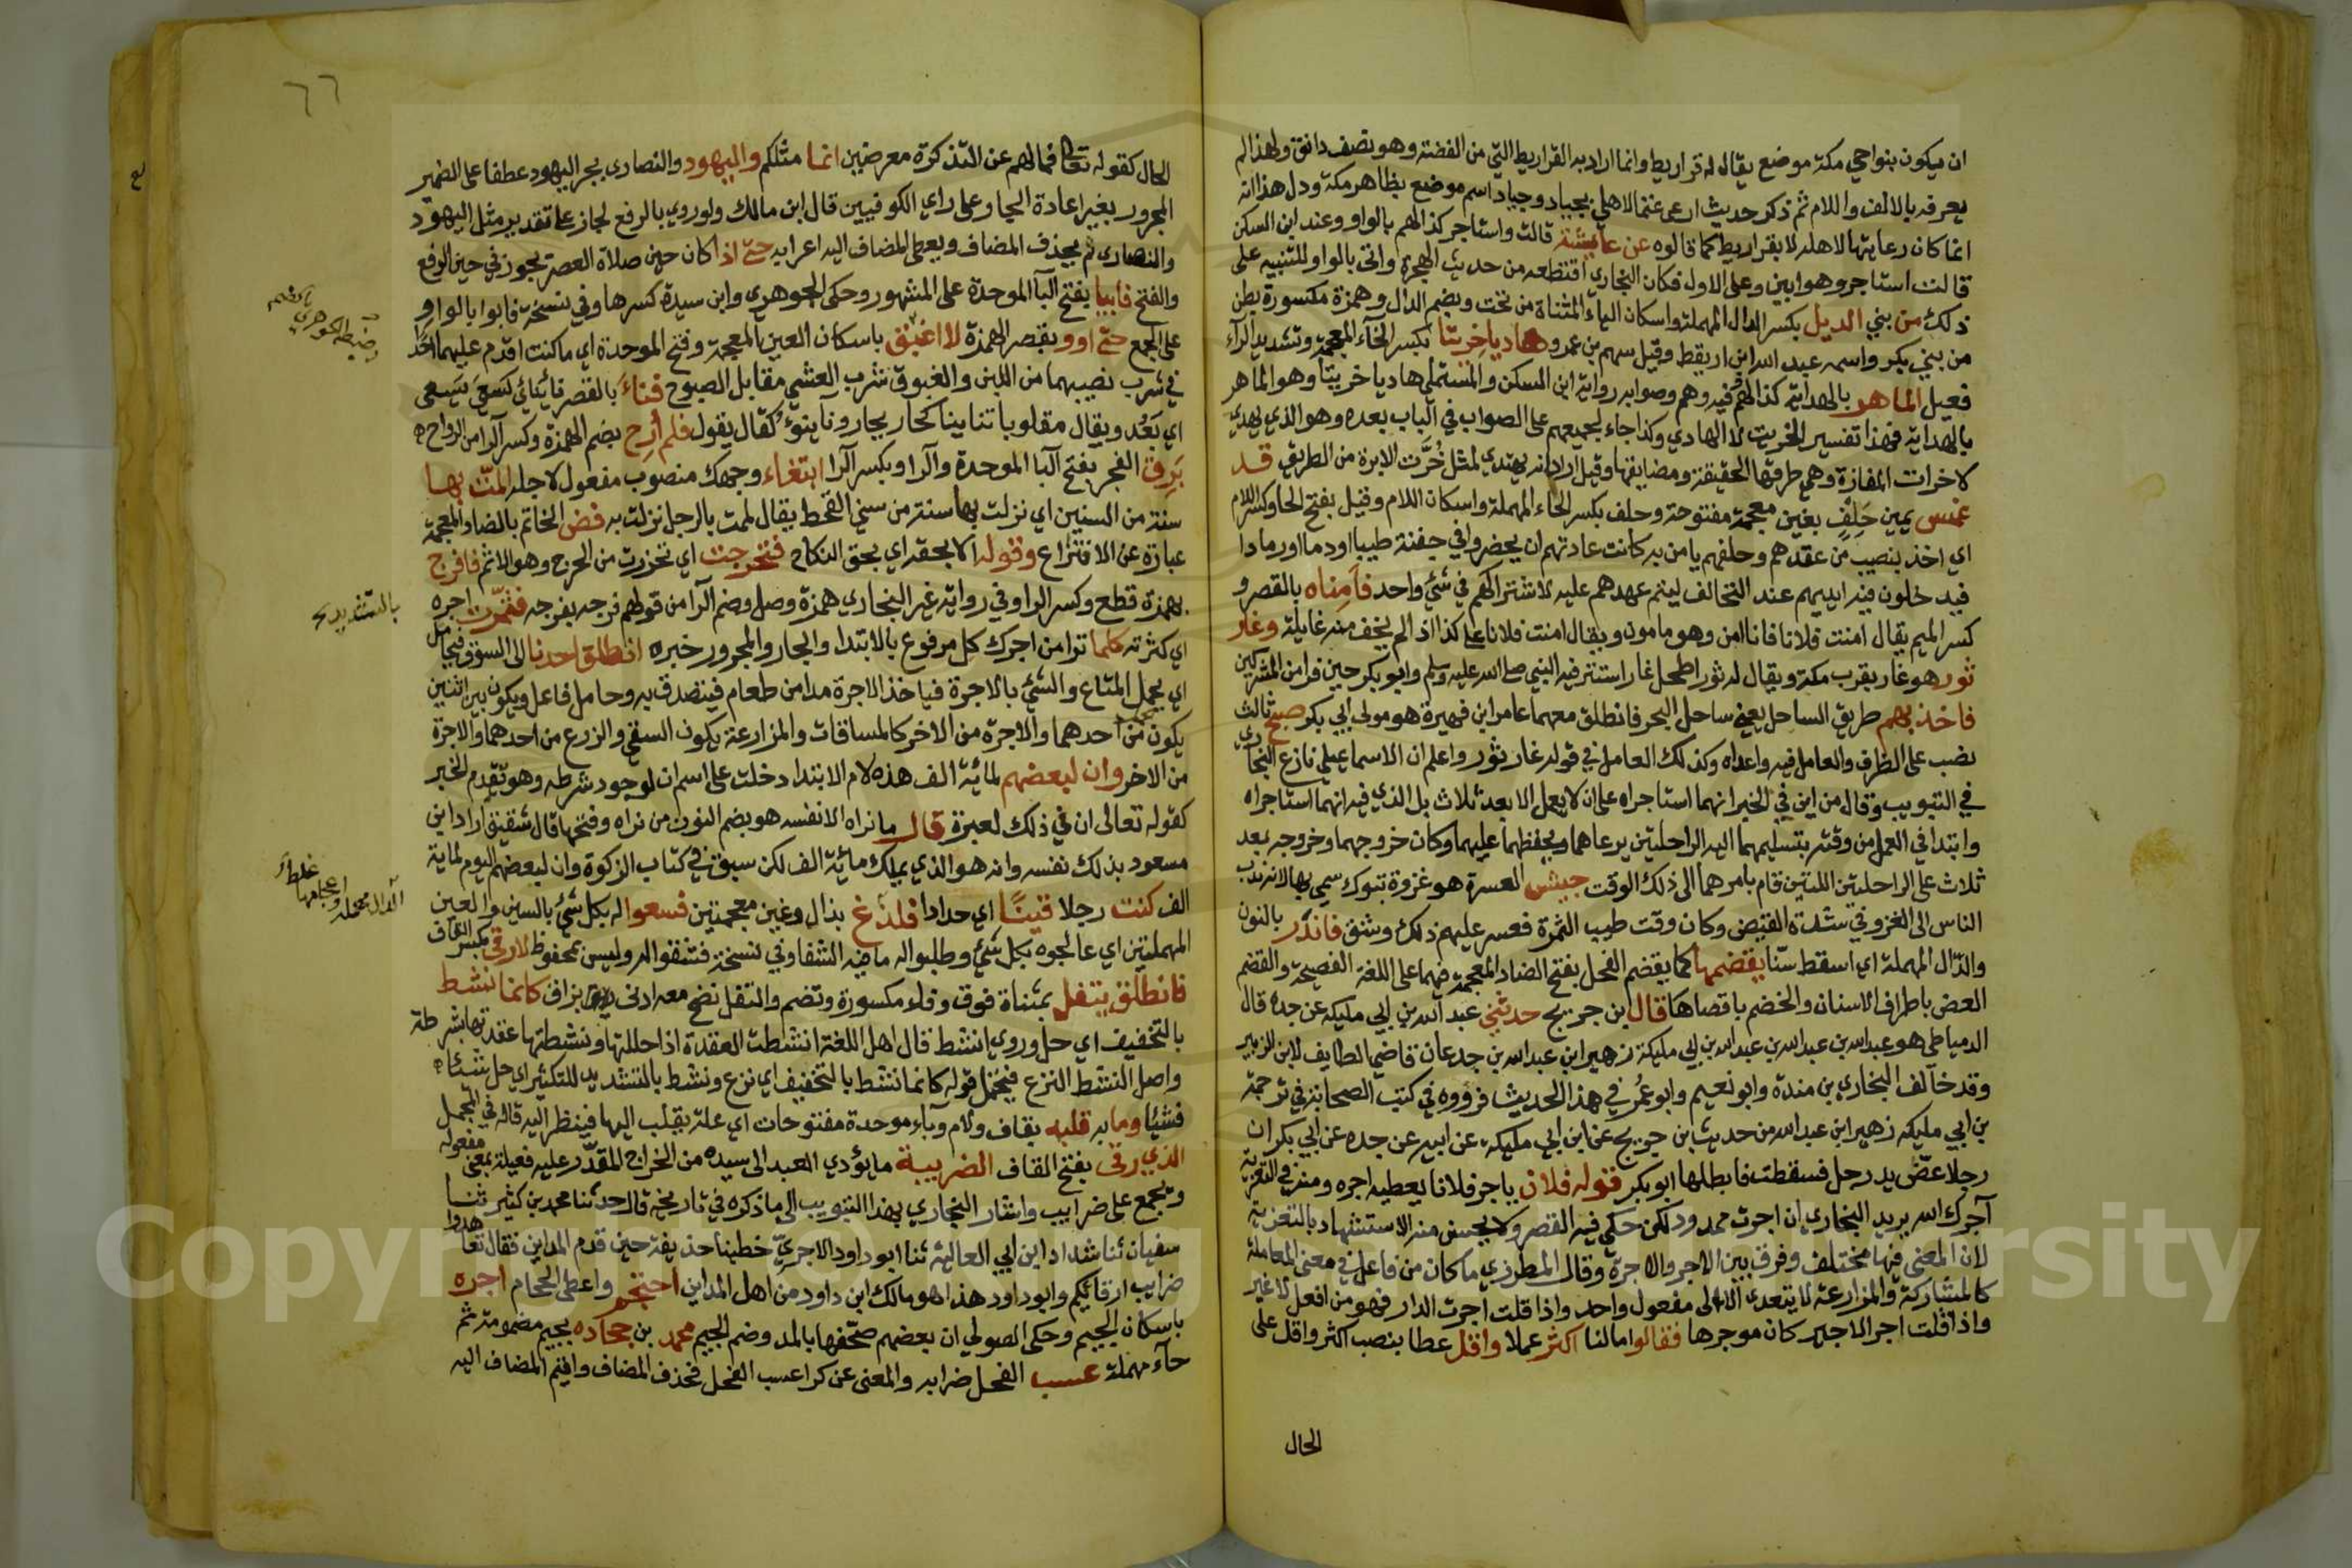 ان يكون بنواحي مكة موضع يقال له قراريط وانما اراد به القراريط التي من الفضة وهو نصف دانق ولهذا لم
يعرفه بالالف واللام ثم ذكر حديث ارعى غنما لاهلي بجياد وجياد اسم موضع بظاهر مكة ودل هذا انه
انما كان رعايتها لاهله لا بقراريط كما قالوه عن عايشة قالت واستاجر كذا لهم بالواو وعند ابن السكن
قالت استاجر وهو ابين وعلى الاول فكان البخاري اقتطعه من حديث الهجرة واتى بالواو للتنبيه على
ذلك من بني الديل بكسر الدال المهملة واسكان الياء المثناة من تحت وبضم الدال وهمزة مكسورة بطن
من بني بكر واسمه عبد الله ابن اريقط وقيل سهم بن عمرو هاديا خريتا بكسر الخاء المعجمة وتشديد الراء
فعيل الماهر بالهداية كذا لهم فيه وهم وصوابه رواية ابن السكن والمستملي هاديا خريتا وهو الماهر
بالهداية فهذا تفسير الخريت لا الهادي وكذا جاء لجميعهم على الصواب في الباب بعده وهو الذي يهتدي
لاخرات المفازة وهي طرقها الخفية ومضايقها وقيل اراد انه يهتدي لمثل خرت الابرة من الطريق قد
غمس يمين حلف بغين معجمة مفتوحة وحلف بكسر الحاء المهملة واسكان اللام وقيل بفتح الحا وكسر اللام
اي اخذ بنصيب من عقدهم وحلفهم يامن به كانت عادتهم ان يحضروا في جفنة طيبا او دما او رمادا
فيدخلون فيه ايديهم عند التحالف ليتم عهدهم عليه لاشتراكهم في شئ واحد فامناه بالقصر و
كسر الميم يقال امنت فلانا فانا امن وهو مامون ويقال امنت فلانا على كذا اذا لم يخف منه غايلة وغار
ثور هو غار بقرب مكة ويقال له ثور اطحل غار استتر فيه النبي صلى الله عليه وسلم وابو بكر حين فرا من المشركين
فاخذ بهم طريق الساحل يعني ساحل البحر فانطلق معهما عامر ابن فهيرة هو مولى ابي بكر صبح ثالث
نصب على الظرف والعامل فيه واعداه وكذلك العامل في قوله غار ثور واعلم ان الاسماعيلي نازع البخاري
في التبويب وقال من اين في الخبر انهما استاجراه على ان لا يعمل الا بعد ثلاث بل الذي فيه انهما استاجراه
وابتدا في العمل من وقته بتسليمهما اليه الراحلتين يرعاهما ويحفظهما عليهما وكان خروجهما وخروجه بعد
ثلاث على الراحلتين اللتين قام بامرهما الى ذلك الوقت جيش العسرة هو غزوة تبوك سمي بها لانه ندب
الناس الى الغزو في شدة القيض وكان وقت طيب الثمرة فعسر عليهم ذلك وشق فاندر بالنون
والدال المهملة اي اسقط سنا يقضمها كما يقضم الفحل بفتح الضاد المعجمة فيهما على اللغة الفصيحة والقضم
العض باطراف الاسنان والخضم باقصاها قال ابن جريج حدثني عبد الله بن ابي مليكه عن جده قال
الدمياطي هو عبد الله بن عبيد الله بن عبد الله بن ابي مليكة زهير ابن عبد الله بن جدعان قاضي الطايف لابن الزبير
وقد خالف البخاري بن مندة وابو نعيم وابو عمر في هذا الحديث فرووه في كتب الصحابة في ترجمة
بن ابي مليكه زهير ابن عبد الله من حديث ابن جريج عن ابن ابي مليكه عن ابيه عن جده عن ابي بكر ان
رجلا عض يد رجل فسقطت فابطلها ابو بكر قوله فلان ياجر فلانا يعطيه اجره ومنه في التعزية
آجرك الله يريد البخاري ان اجرت ممدود لكن حكي فيه القصر ولا يحسن منه الاستشهاد بالتعزية
لان المعنى فيها مختلف وفرق بين الاجر والاجرة وقال المطرزي ما كان من فاعل في معنى المعاملة
كالمشاركة والمزارعة لا يتعدى الا الى مفعول واحد واذا قلت اجرت الدار فهو من افعل لا غير
واذا قلت اجر الاجير كان موجرها فقالوا مالنا اكثر عملا واقل عطا بنصب اكثر واقل على
الحال
٦٦
الحال كقوله تعالى فمالهم عن التذكرة معرضين انما مثلكم واليهود والنصارى بجر اليهود عطفا على الضمير
المجرور بغير اعادة الجار على راي الكوفيين قال ابن مالك ولو روي بالرفع لجاز على تقدير مثل اليهود
والنصارى ثم يحذف المضاف ويعطى المضاف اليه اعرابه حتى اذا كان حين صلاة العصر يجوز في حين الرفع
والفتح فابيا بفتح البا الموحدة على المشهور وحكى الجوهري وابن سيدة كسرها وفي نسخة فابوا بالواو
على الجمع حتى اووا بقصر الهمزة لا اغبق باسكان الغين المعجمة وفتح الموحدة اي ما كنت اقدم عليهما احدا
في شرب نصيبهما من اللبن والغبوق شرب العشي مقابل الصبوح فناء بالقصر نأى ينأى كسعى يسعى
اي بعد ويقال مقلوبا تنايينا كحار يحار ونا ينوء كقال يقول فلم ارح بضم الهمزة وكسر الرا من الرواح
برق الفجر بفتح البا الموحدة والرا وبكسر الرا ابتغاء وجهك منصوب مفعول لاجله المت بها
سنة من السنين اي نزلت بها سنة من سني القحط يقال المت بالرجل نزلت به فض الخاتم بالضاد المعجمة
عبارة عن الافتراع وقوله الا بحقه اي بحق النكاح فتحرجت اي تحرزت من الحرج وهو الاثم فافرج
بهمزة قطع وكسر الراو وفي رواية غير البخاري همزة وصل وضم الرا من قولهم فرجه يفرجه فثمرت اجره
اي كثرته كلما ترا من اجرك كل مرفوع بالابتدا والجار والمجرور خبره انطلق احدنا الى السوق فيحامل
اي يحمل المتاع والشئ بالاجرة فياخذ الاجرة مدا من طعام فيتصدق به وحامل فاعل ويكون بين اثنين
يكون من احدهما والاجرة من الاخر كالمساقات والمزارعة يكون السقي والزرع من احدهما والاجرة
من الاخر وان لبعضهم لمائة الف هذه لام الابتدا دخلت على اسم ان لوجود شرطه وهو تقدم الخبر
كقوله تعالى ان في ذلك لعبرة قال ما نراه الا نفسه هو بضم النون من نراه وفتحها قال شقيق اراد ابن
مسعود بذلك نفسه وانه هو الذي يملك مائة الف لكن سبق في كتاب الزكوة وان لبعضهم اليوم لماية
الف كنت رجلا قينا اي حدادا فلدغ بذال وغين معجمتين فسعوا له بكل شئ بالسين والعين
المهملتين اي عالجوه بكل شئ وطلبوا له ما فيه الشفا وفي نسخة فشفوا له وليس بمحفوظ لارقي بكسر القاف
فانطلق يتفل بمثناة فوق وفاء مكسورة وتضم والتفل نفخ معه ادنى بزاق كانما نشط
بالتخفيف اي حل وروي انشط قال اهل اللغة انشطت العقدة اذا حللتها ونشطتها عقدتها بشرطة
واصل النشط النزع فيحتمل قوله كانما نشط بالتخفيف اي نزع ونشط بالتشديد للتكثير اي حل شيئا
فشيئا وما به قلبه بقاف ولام وباء موحدة مفتوحات اي علة يقلب اليها فينظر اليه قاله في المجمل
الذي رقى بفتح القاف الضريبة ما يؤدي العبد الى سيده من الخراج المقدر عليه فعيلة بمعنى مفعوله
وتجمع على ضرايب واشار البخاري بهذا التبويب الى ما ذكره في تاريخه قال حدثنا محمد بن كثير ثنا
سفيان ثنا شداد ابن ابي العالية ثنا ابو داود الاجري خطبنا حذيفة حين قدم المداين فقال تعاهدوا
ضرايب ارقائكم وابو داود هذا هو مالك ابن داود من اهل المداين احتجم واعطى الحجام اجره
باسكان الجيم وحكى الصولي ان بعضهم صحفها بالمد وضم الجيم محمد بن جحاده بجيم مضمومة ثم
حاء مهملة عسب الفحل ضرابه والمعنى عن كرا عسب الفحل فحذف المضاف واقيم المضاف اليه
بالتشديد